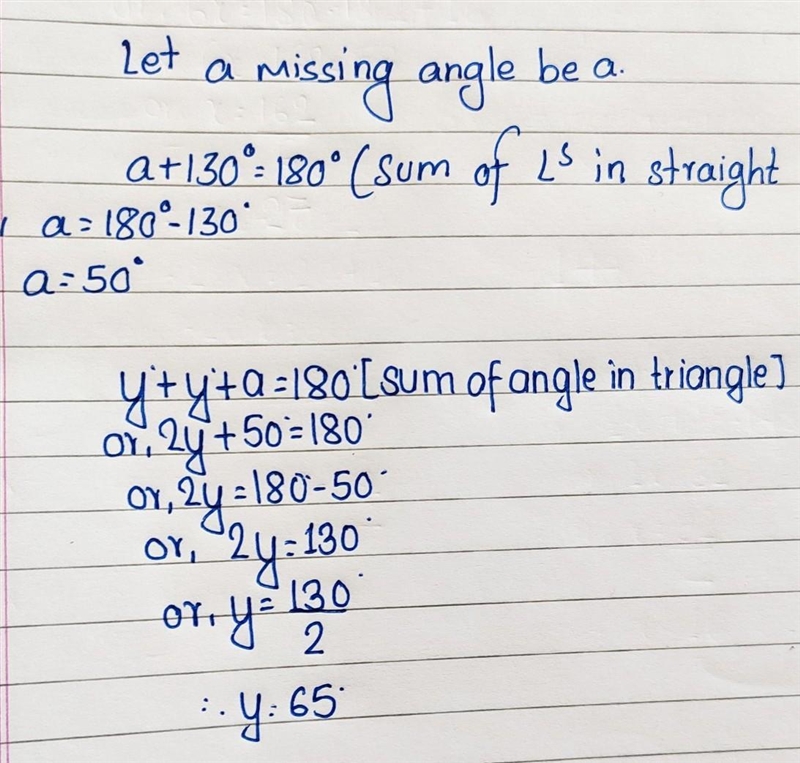 Let a missing angle be a.
a+130°=180° (sum of ∠s in straight
a=180°-130°
a=50°
y°+y°+a=180° [sum of angle in triangle]
or, 2y+50°=180°
or, 2y=180°-50°
or, 2y=130°
or, y=130°/2
∴ y=65°